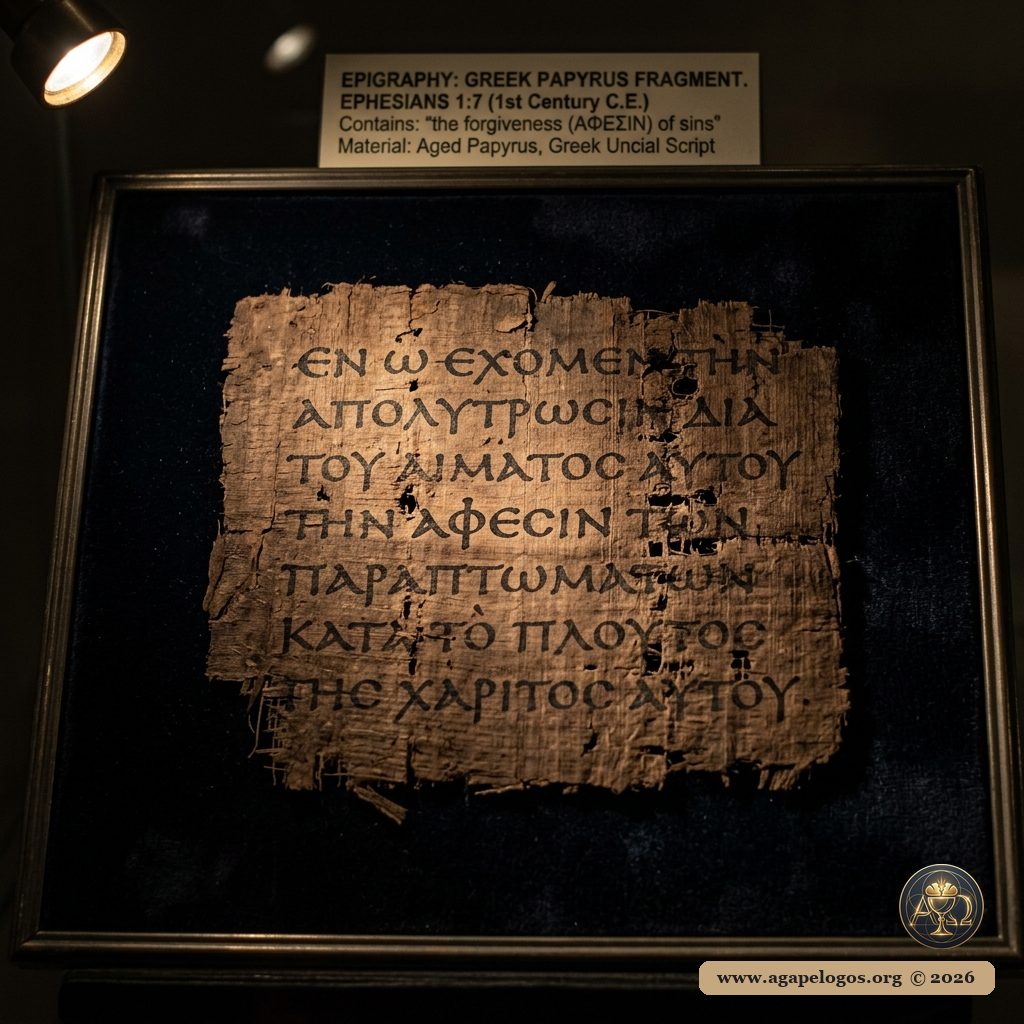 EPIGRAPHY: GREEK PAPYRUS FRAGMENT.
EPHESIANS 1:7 (1st Century C.E.)
Contains: "the forgiveness (ΑΦΕΣΙΝ) of sins"
Material: Aged Papyrus, Greek Uncial Script
ЄΝ Ѡ ЄΧΟΜЄΝ ΤῊΝ
ΑΠΟΛΥΤΡѠϹΙΝ ΔΙΑ
ΤΟΥ ΑΙΜΑΤΟϹ ΑΥΤΟΥ
ΤΗΝ ΑΦЄϹΙΝ ΤѠΝ
ΠΑΡΑΠΤѠΜΑΤѠΝ
ΚΑΤΑ ΤῸ ΠΛΟΥΤΟϹ
ΤΗϹ ΧΑΡΙΤΟϹ ΑΥΤΟΥ.
ΑΩ
www.agapelogos.org © 2026